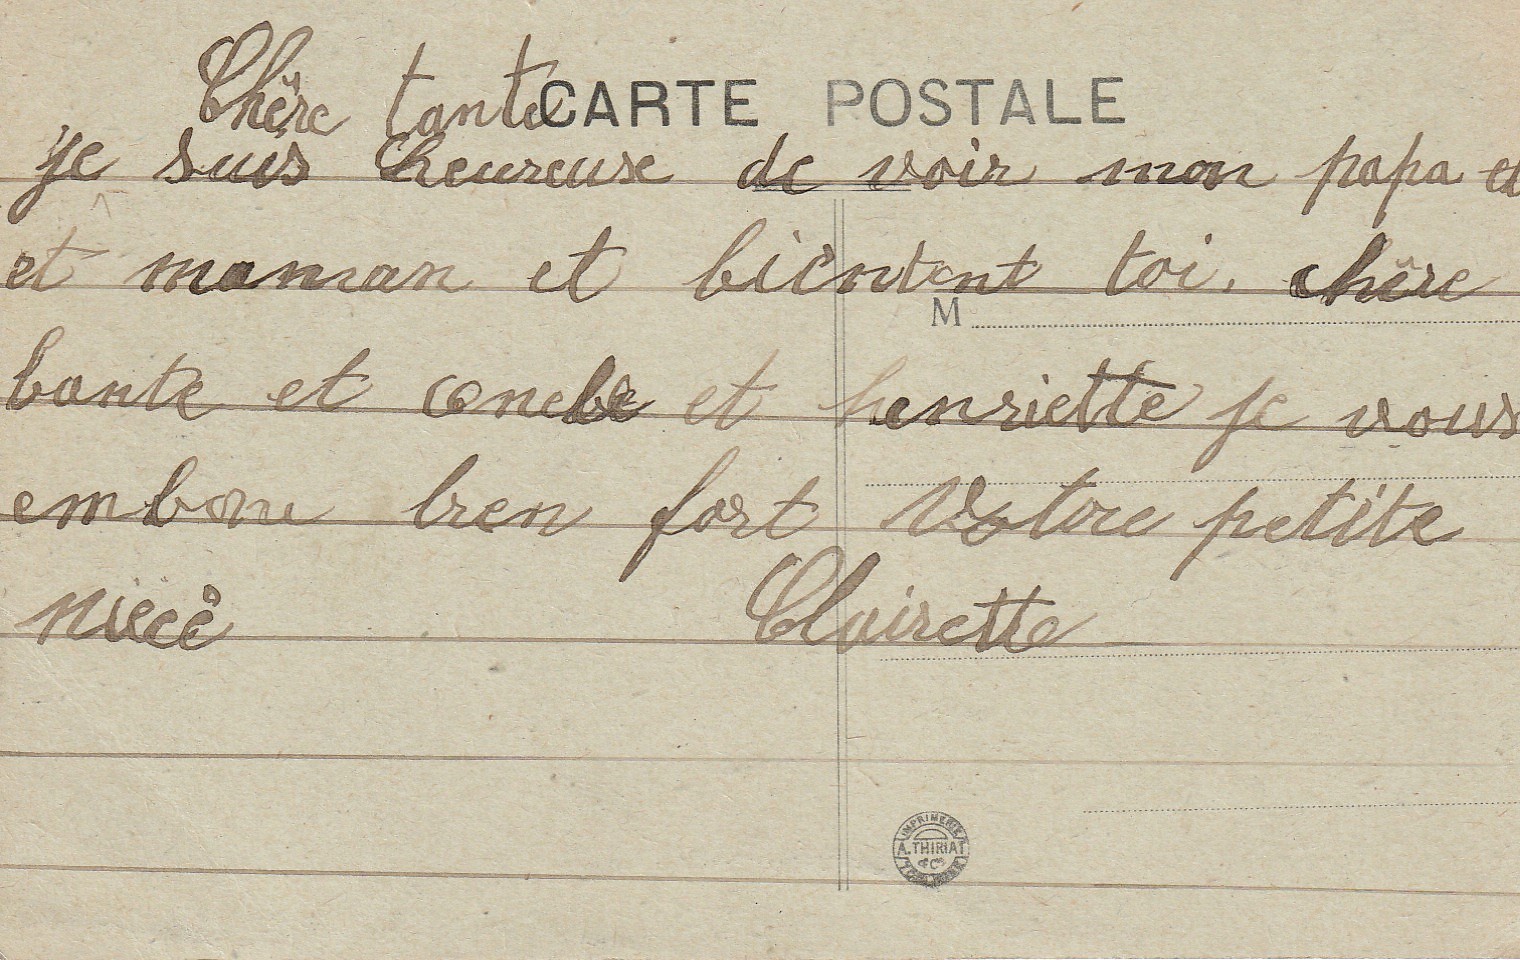 Chêre tante
CARTE POSTALE
je suis heureuse de voir mon papa et
et maman et bientent toi. chêre
M
tante et oncle et henriette je vous
embone bien fort Votre petite
niece Clairette
IMPRIMERIE
A. THIRIAT
& Cie